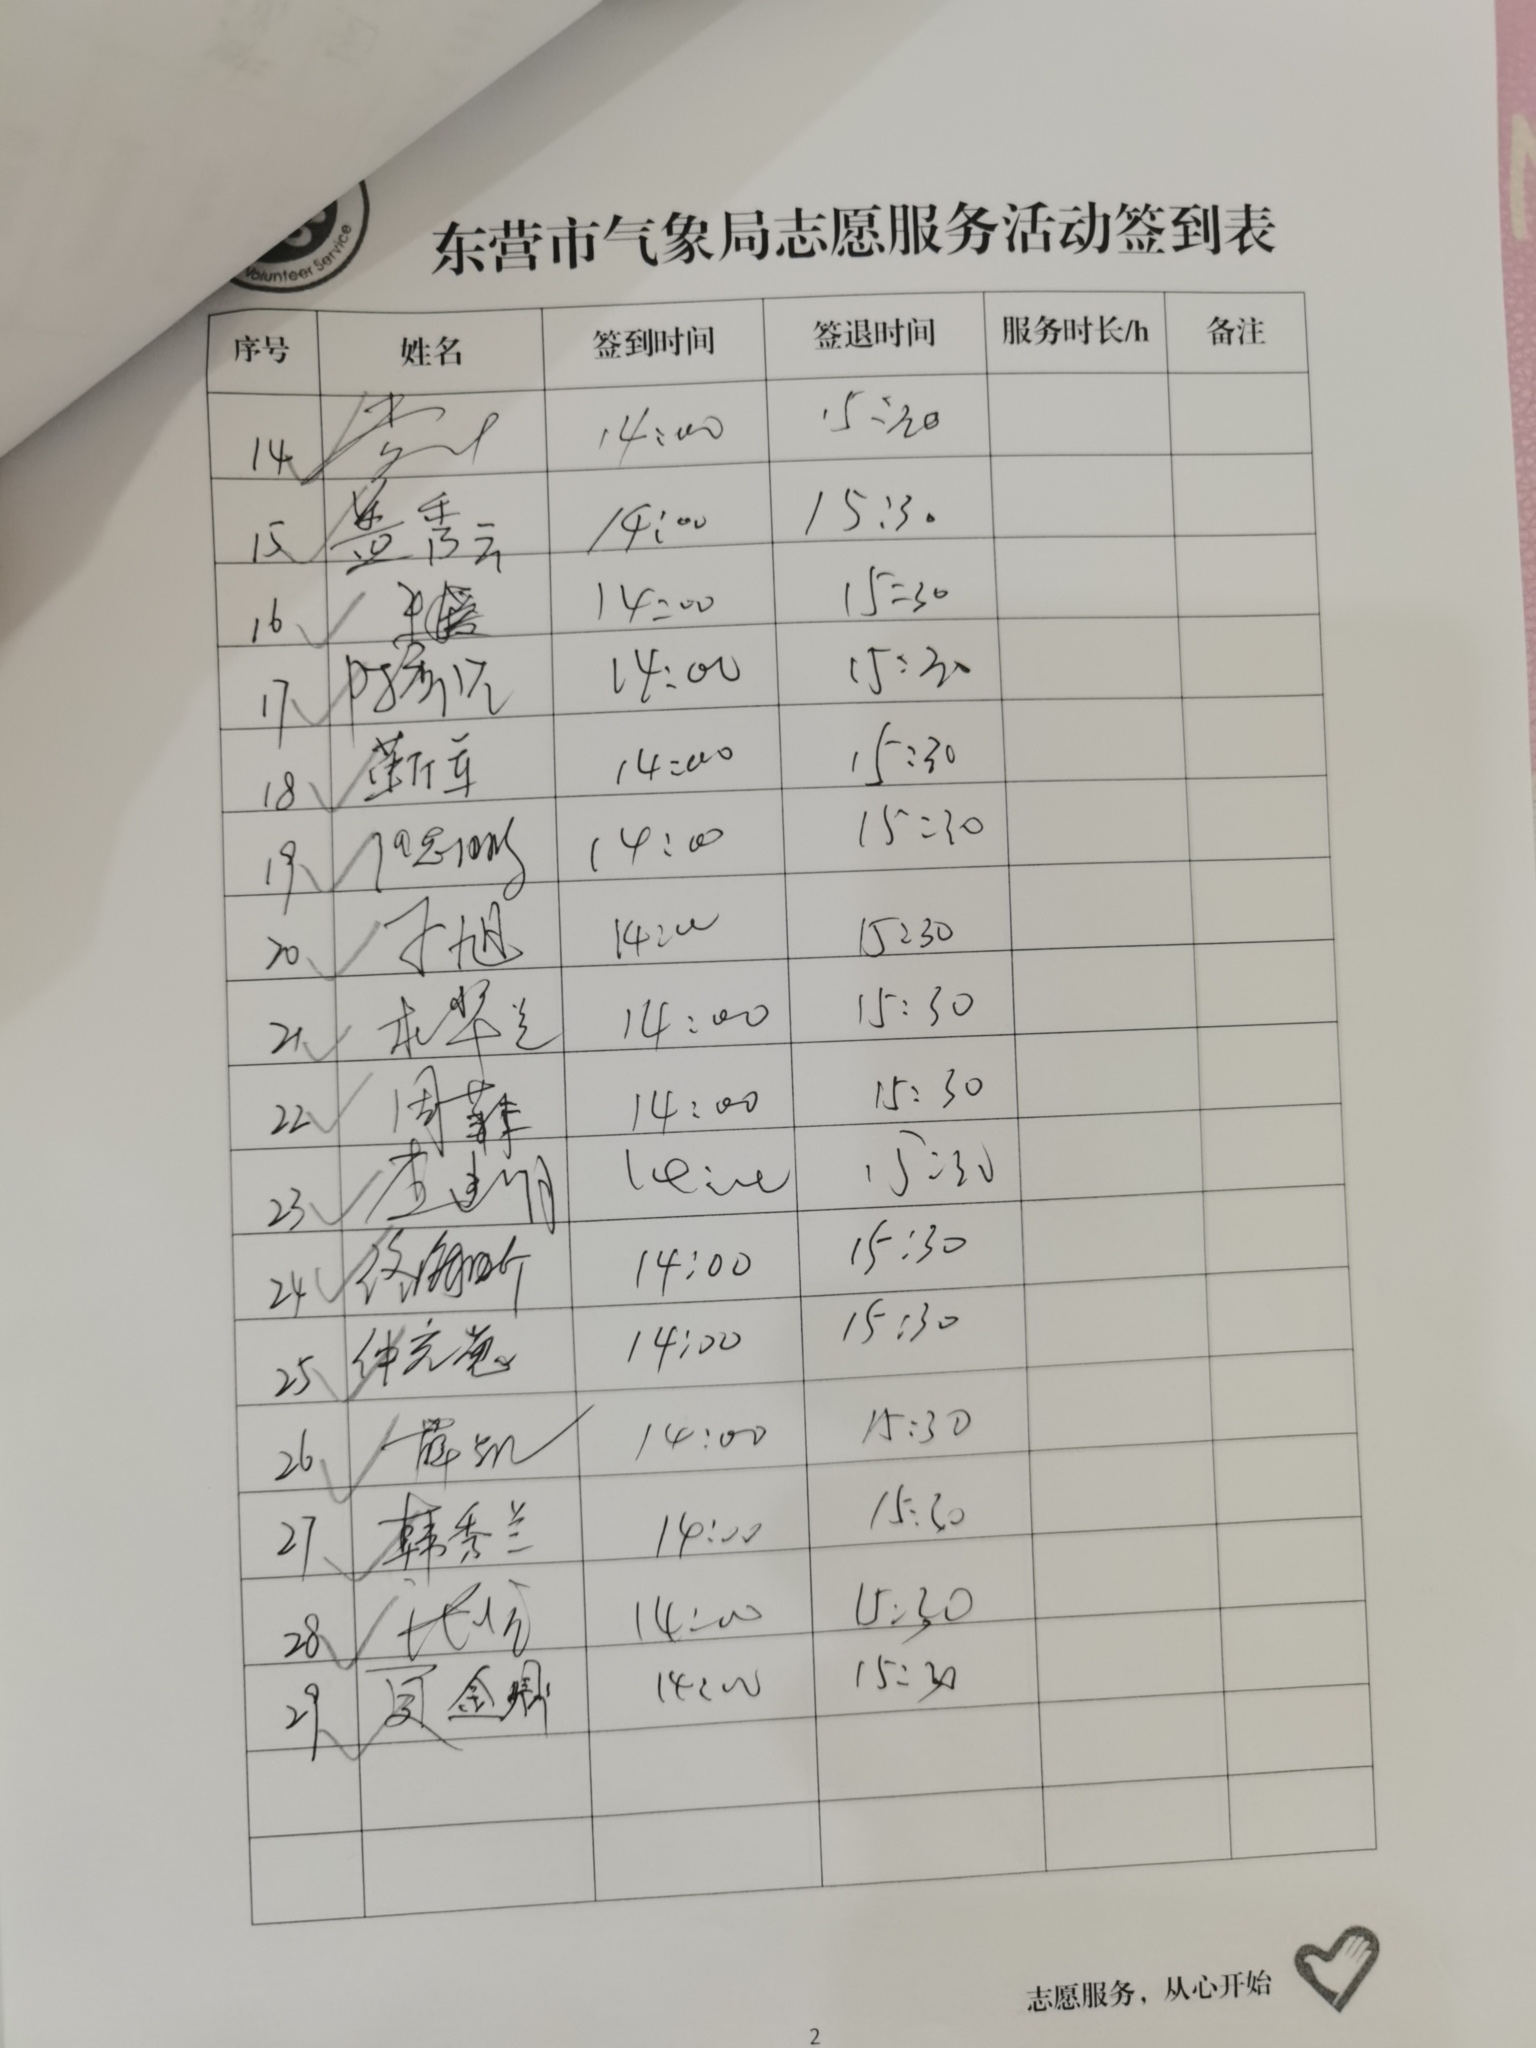 Volunteer Service
东营市气象局志愿服务活动签到表
序号 姓名 签到时间 签退时间 服务时长/h 备注
14 14:00 15:30
15 盖秀云 14:00 15:30
16 14:00 15:30
17 14:00 15:30
18 14:00 15:30
19 14:00 15:30
20 于旭 14:00 15:30
21 14:00 15:30
22 周菲 14:00 15:30
23 李建明 14:00 15:30
24 14:00 15:30
25 14:00 15:30
26 薛凯 14:00 15:30
27 韩秀兰 14:00 15:30
28 14:00 15:30
29 14:00 15:30
志愿服务，从心开始
2